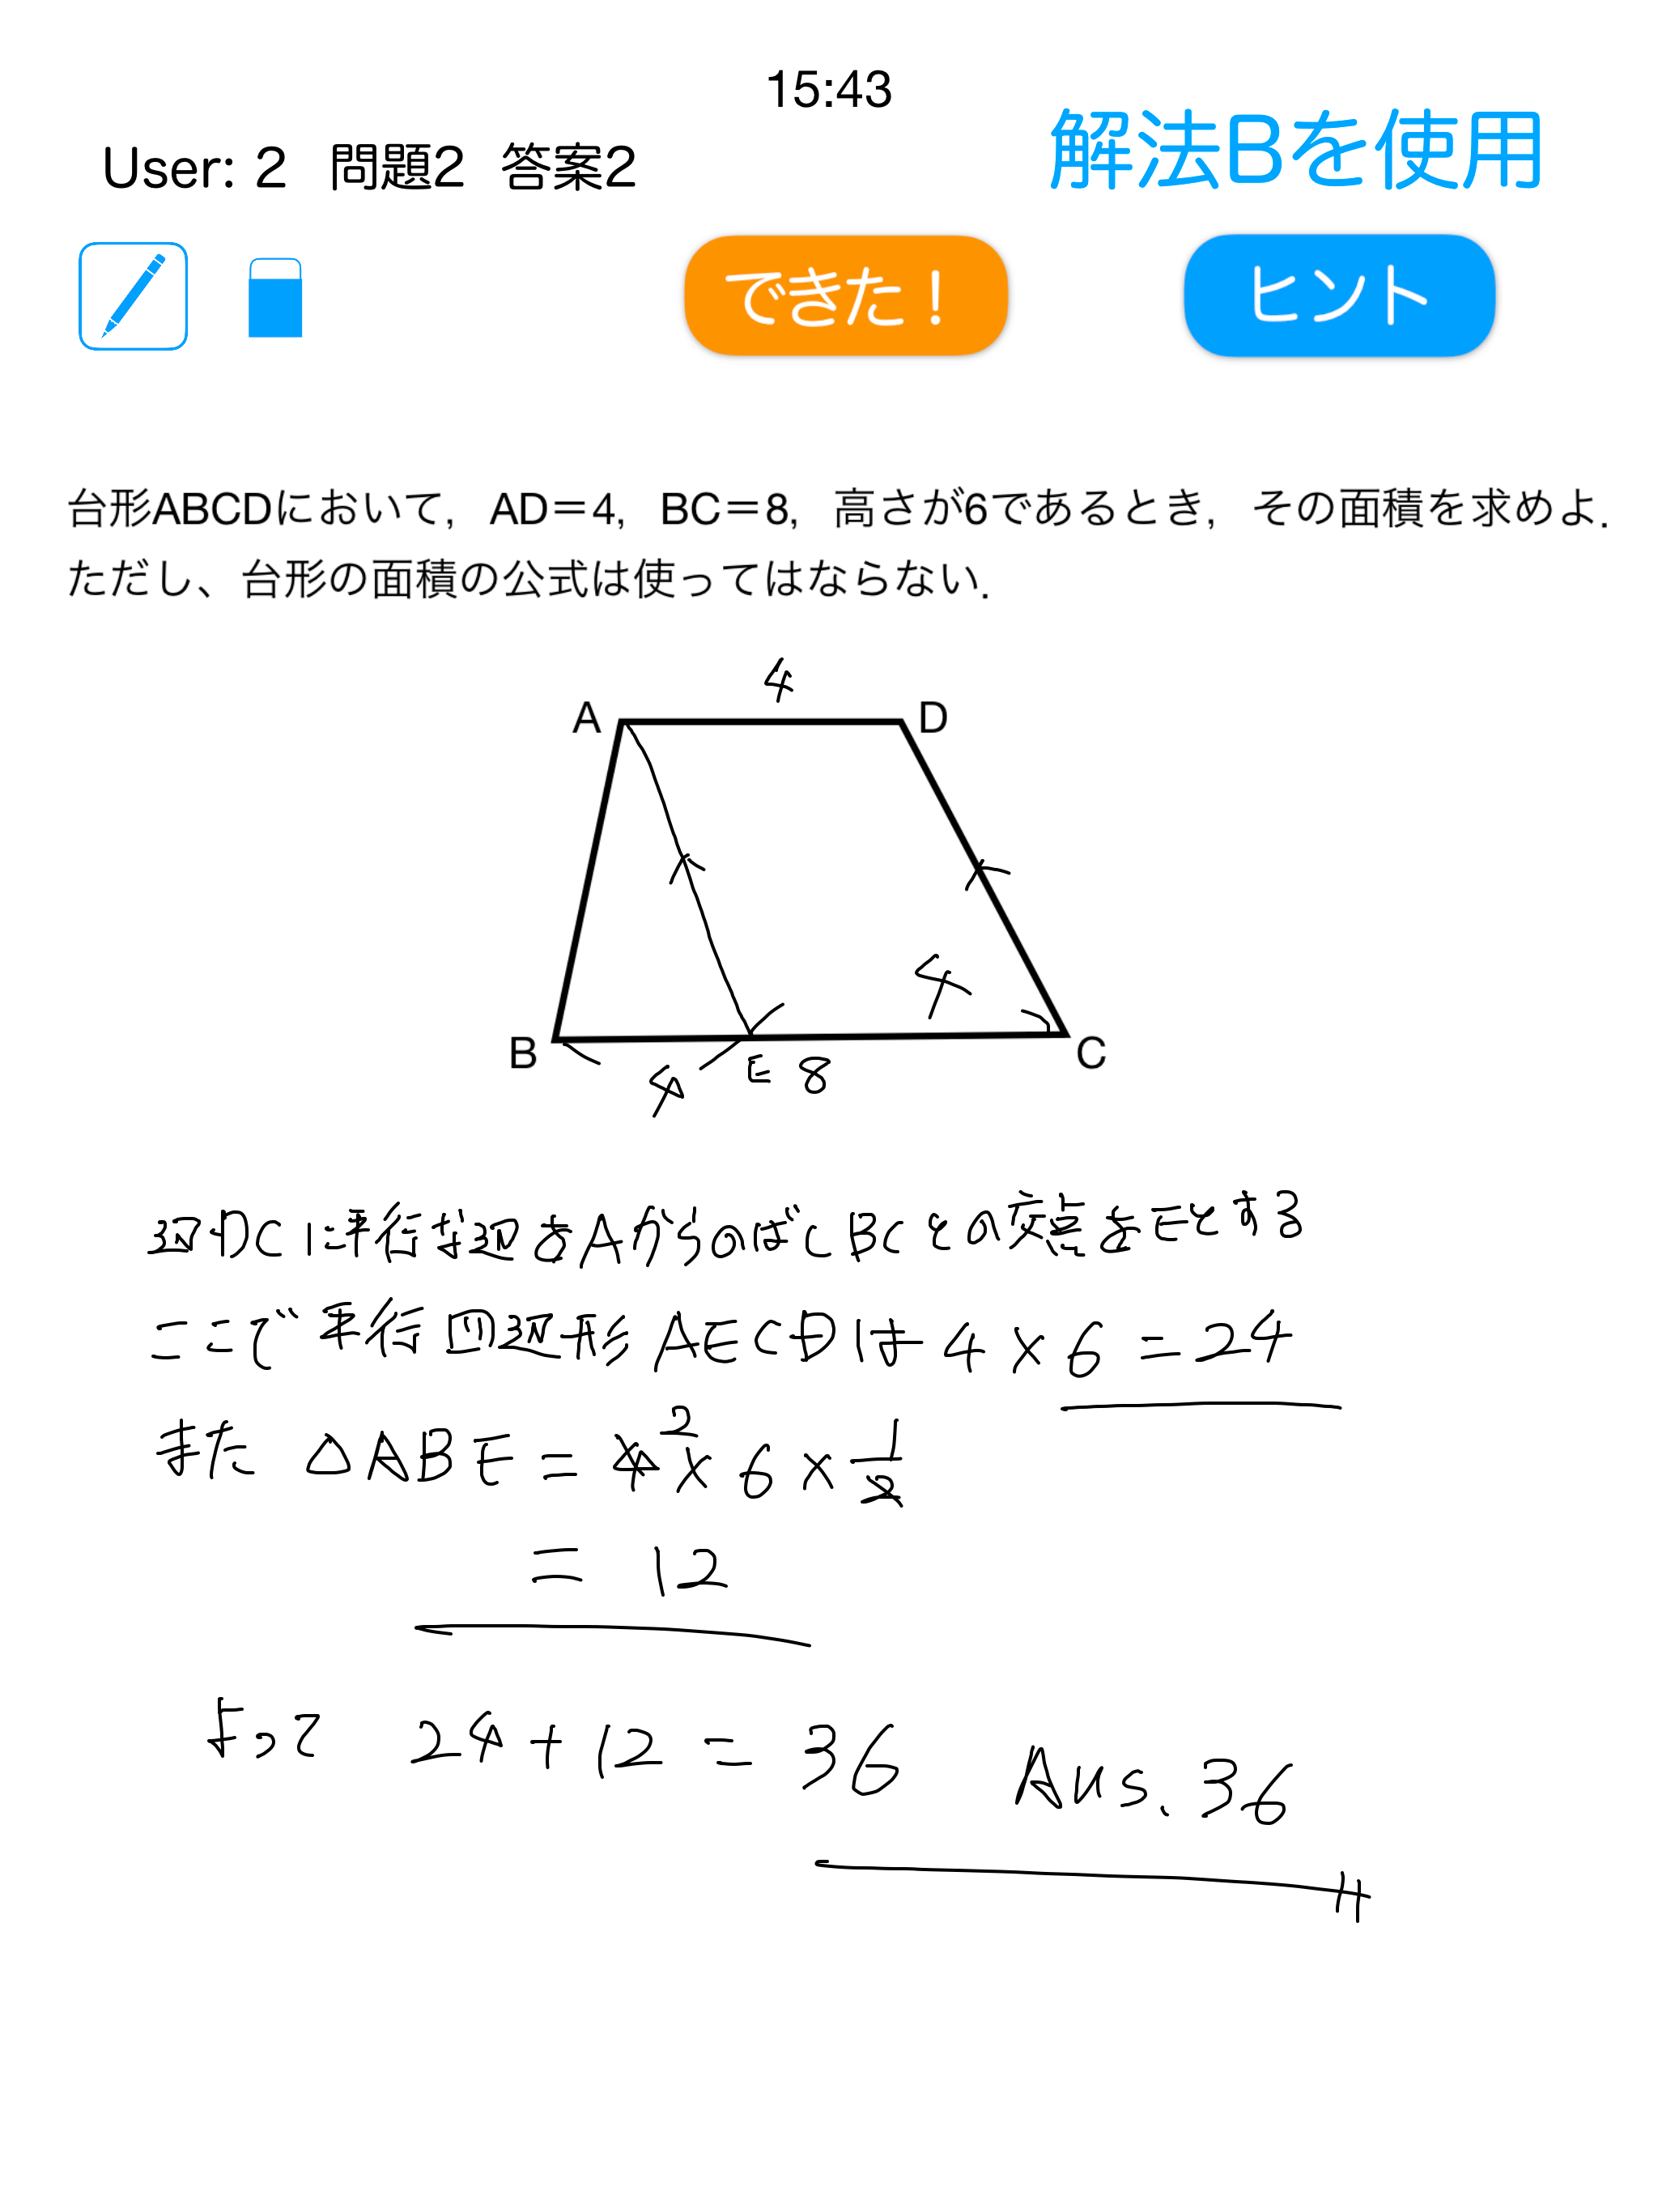 15:43
User: 2 問題2 答案2
解法Bを使用
できた！
ヒント
台形ABCDにおいて，AD＝4，BC＝8，高さが6であるとき，その面積を求めよ．
ただし、台形の面積の公式は使ってはならない．
4
A
D
4
B
C
4
E
8
辺DCに平行な辺をAからのばしBCとの交点をEとする
ここで平行四辺形AECDは4×6=24
また △ABE = 4 2 × 6 × 1/2
= 12
よって 24+12 = 36
Ans. 36